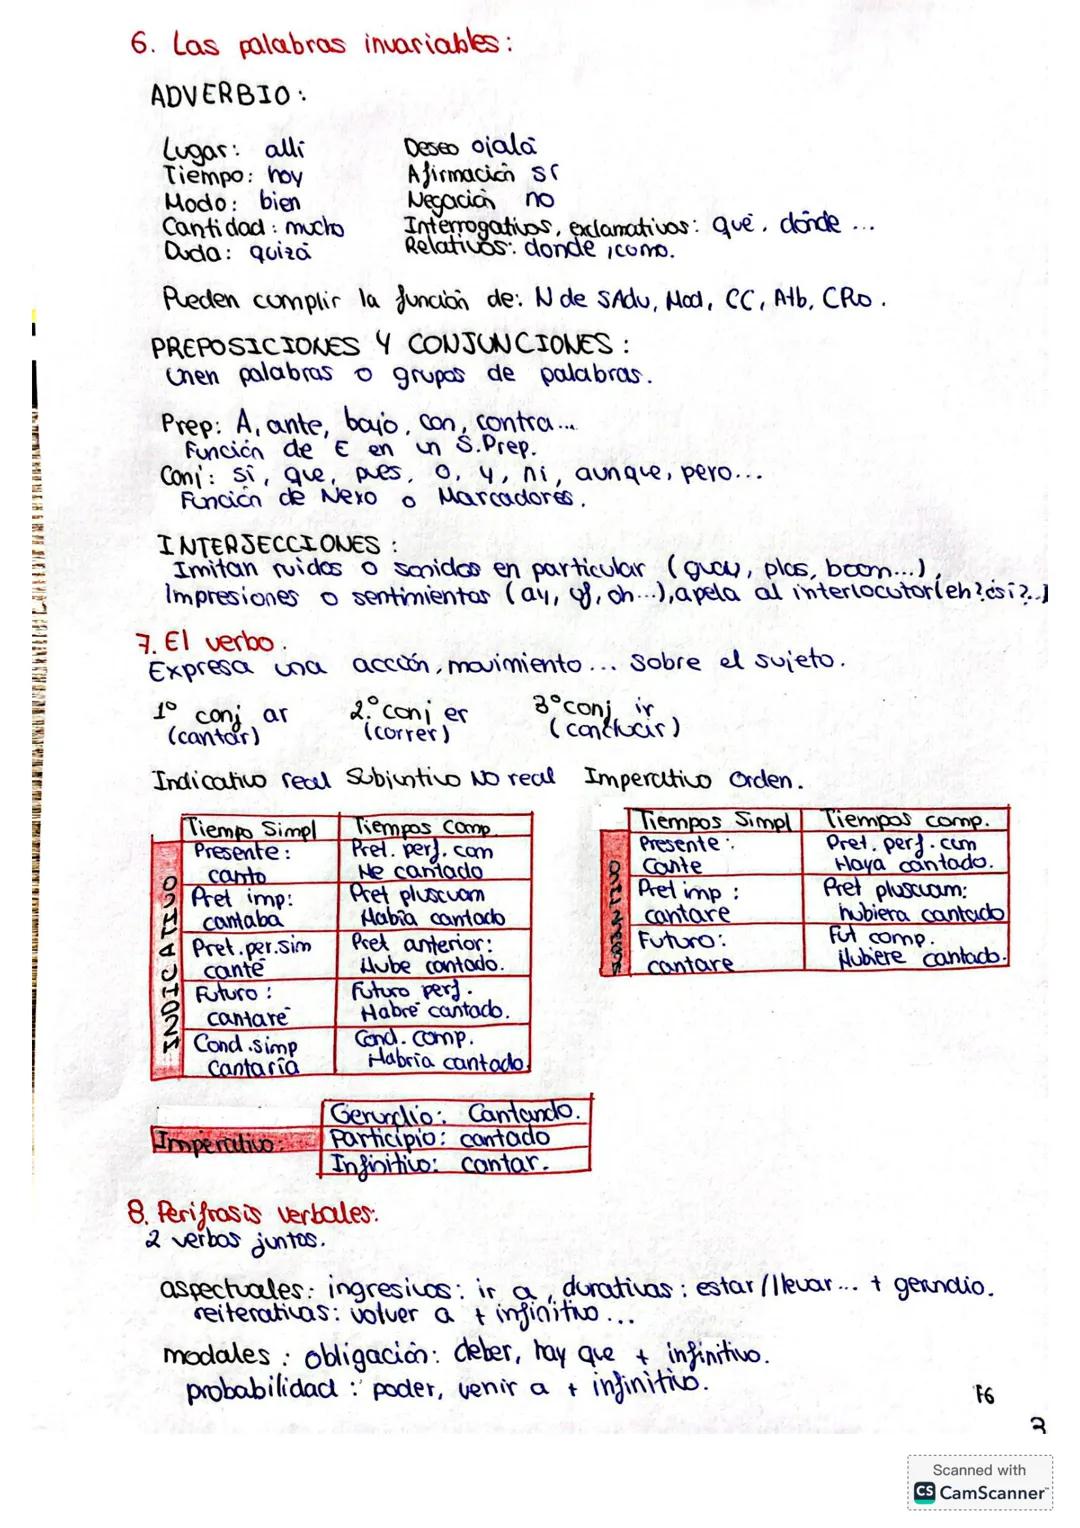 6. Las palabras invariables:
ADVERBIO:
Lugar: allí
Tiempo: hoy
Modo: bien
Cantidad: mucho
Duda: quizá
Deseo ojalá
Afirmación sí
Negación no
Interrogativos, exclamativos: qué, dónde ...
Relativos: donde, como.
Pueden cumplir la función de: N de SAdv, Mod, CC, Atb, CRo.
PREPOSICIONES Y CONJUNCIONES:
Unen palabras o grupos de palabras.
Prep: A, ante, bajo, con, contra...
Función de E en un S.Prep.
Conj: si, que, pues, o, y, ni, aunque, pero...
Función de Nexo o Marcadores.
INTERJECCIONES:
Imitan ruidos o sonidos en particular (guau, plas, boom...),
Impresiones o sentimientos (ay, uf, oh...), apela al interlocutor (eh? ¿sí?..)
7. El verbo.
Expresa una acción, movimiento... sobre el sujeto.
1º conj ar
(cantar)
2.º conj er
(correr)
3º conj ir
(conducir)
Indicativo real Subjuntivo NO real Imperativo Orden.
INDICATIVO
Tiempo Simpl Tiempos Comp
Presente: canto
Pret. perf. com He cantado
Pret imp: cantaba
Pret pluscuam Había cantado
Pret.per.sim canté
Pret anterior: Hube cantado.
Futuro: cantaré
Futuro perf. Habré cantado.
Cond.simp Cantaría
Cond. comp. Habría cantado.
Tiempos Simpl Tiempos comp.
Presente: Cante
Pret. perf. com Haya cantado.
Pret imp: cantare
Pret pluscuam: hubiera cantado
Futuro: cantare
Fut comp. Hubiere cantado.
Imperativo:
Gerundio: Cantando.
Participio: cantado
Infinitivo: cantar.
8. Perífrasis verbales:
2 verbos juntos.
aspectuales: ingresivos: ir a, durativas: estar/llevar... + gerundio.
reiterativas: volver a + infinitivo...
modales: obligación: deber, hay que + infinitivo.
probabilidad: poder, venir a + infinitivo.
F6
Scanned with
CS CamScanner